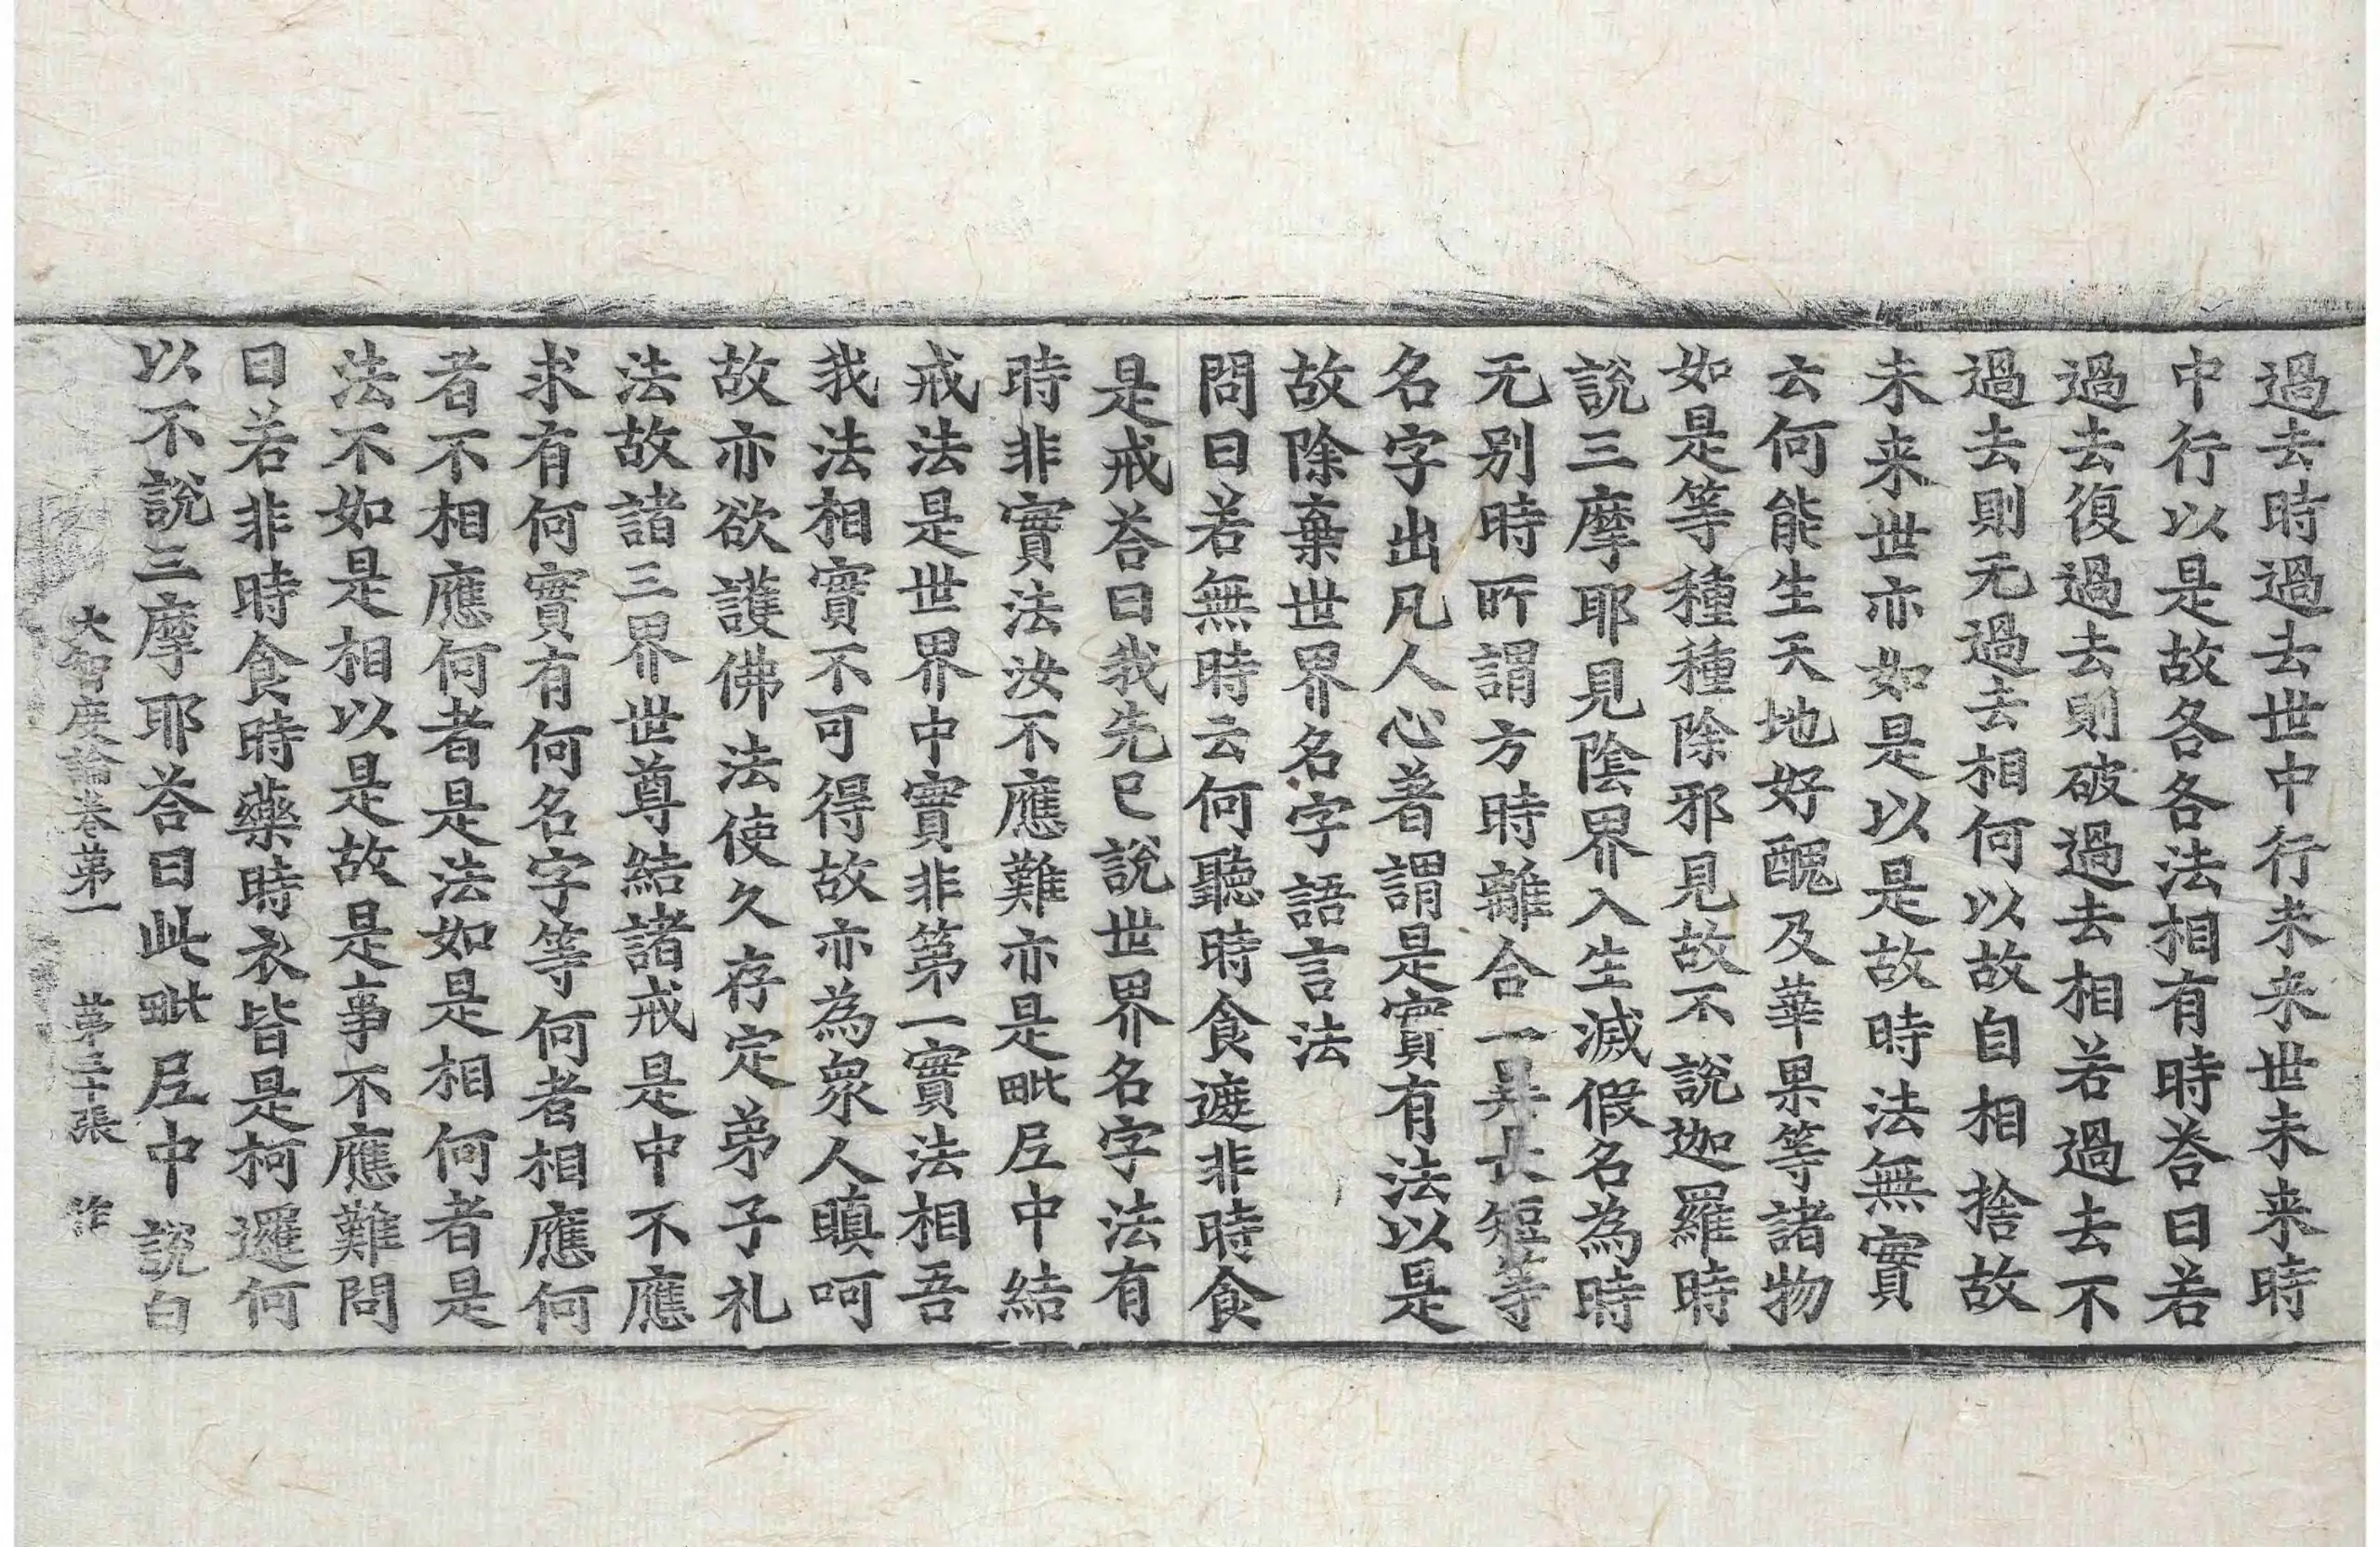 過去時過去世中行未来世未来時
中行以是故各各法相有時荅曰若
過去復過去則破過去相若過去不
過去則无過去相何以故自相捨故
未来世亦如是以是故時法無實
云何能生天地好醜及華果等諸物
如是等種種除邪見故不說迦羅時
說三摩耶見陰界入生滅假名為時
无别時所謂方時離合一異長短等
名字出凡人心著謂是實有法以是
故除棄世界名字語言法
問曰若無時云何聽時食遮非時食
是戒荅曰我先已說世界名字法有
時非實法汝不應難亦是毗尼中結
戒法是世界中實非第一實法相吾
我法相實不可得故亦為衆人瞋呵
故亦欲護佛法使久存定弟子礼
法故諸三界世尊結諸戒是中不應
求有何實有何名字等何者相應何
者不相應何者是法如是相何者是
法不如是相以是故是事不應難問
曰若非時食時藥時衣皆是柯邏何
以不說三摩耶荅曰此毗尼中說白
大智度論卷第一 第三十張